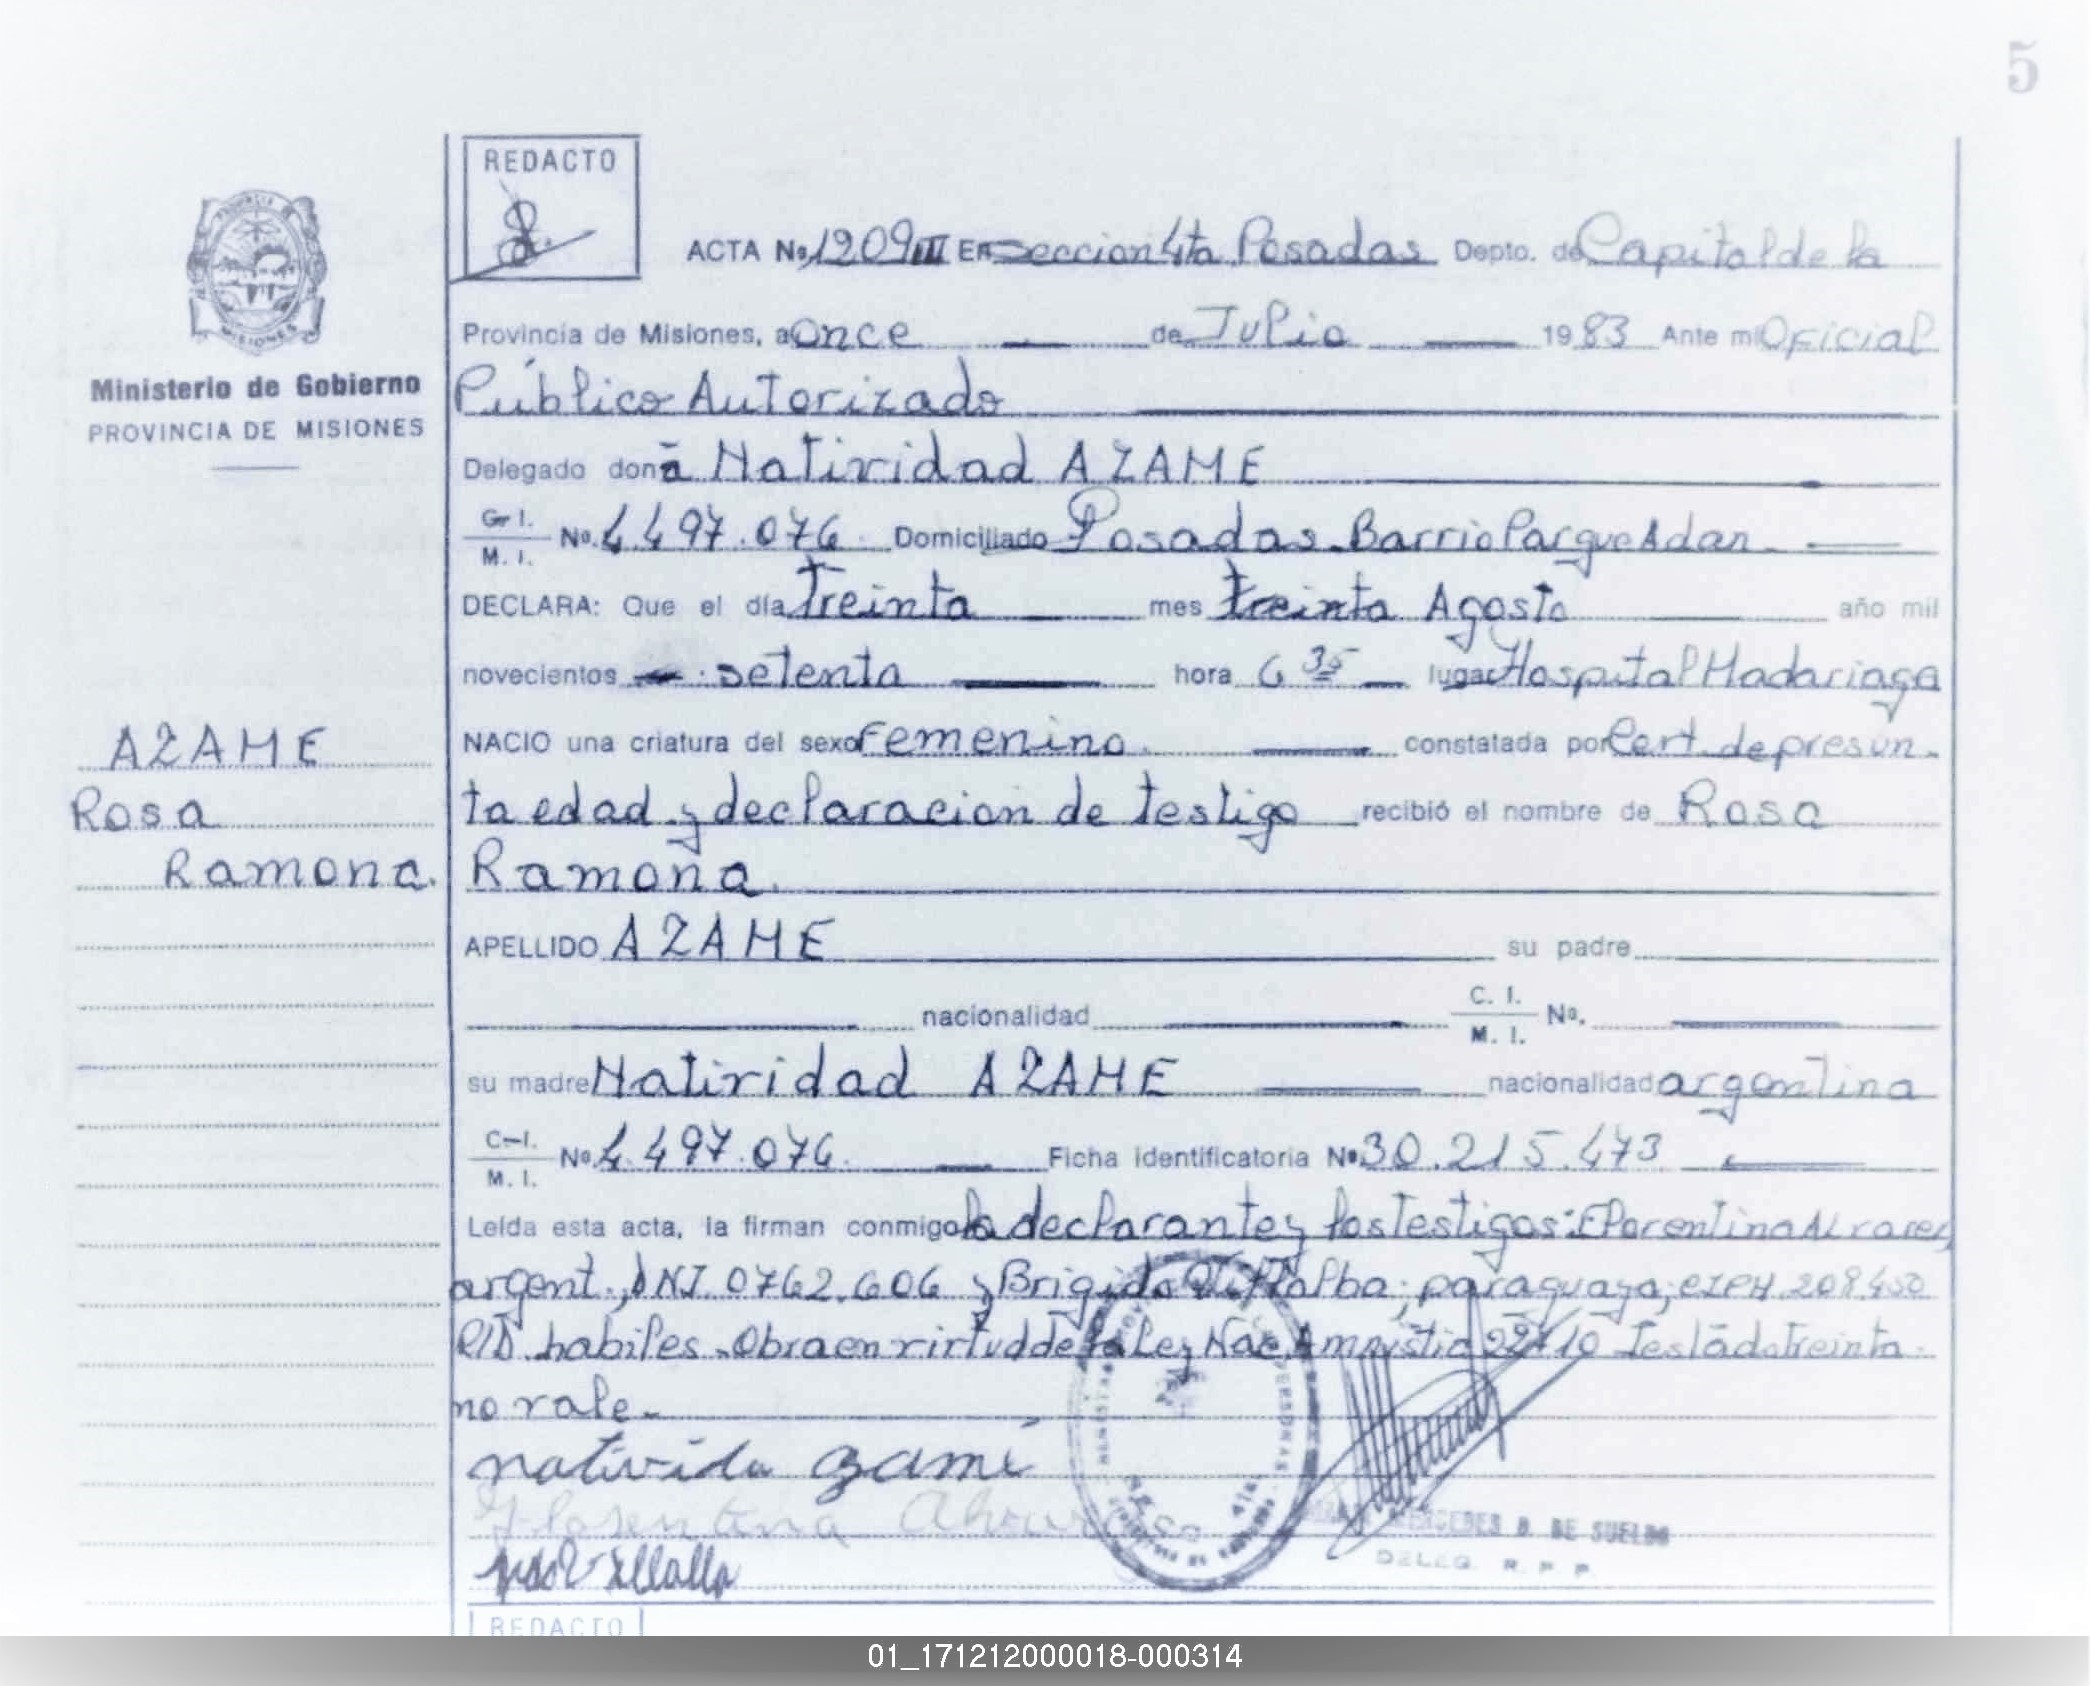 5
REDACTO
ACTA No. 1209 III En seccion 4ta. Posadas Depto. de Capital de la
Provincia de Misiones, a Once de Julio 1983 Ante mi Oficial
Público Autorizado
Ministerio de Gobierno
PROVINCIA DE MISIONES
Delegado doña Natividad AZAME
C. I. M. I. No. 4.497.076 Domiciliado Posadas. Barrio Parque Adan
DECLARA: Que el día Treinta mes treinta Agosto año mil
novecientos setenta hora 6 35 lugar Hospital Madariaga
NACIO una criatura del sexo Femenino constatada por Cert. de presun-
ta edad y declaracion de testigo recibió el nombre de Rosa
Ramona.
AZAME
Rosa
Ramona.
APELLIDO AZAME su padre
nacionalidad C. I. M. I. No.
su madre Natividad AZAME nacionalidad argentina
C. I. M. I. No. 4.497.076. Ficha identificatoria No. 30.215.473
Leída esta acta, la firman conmigo la declarante y los Testigos: Florentina Alvarez,
argent., DNI. 0762.606 y Brigida Villalba; paraguaya, 208.450
habiles. Obra en virtud de la Ley Nac. Amnistia 22410 Testado treinta
no vale.
nativida azame
Florentina
MERCEDES D. DE SUELDO
DELEG. R. P. P
REDACTO
01_171212000018-000314